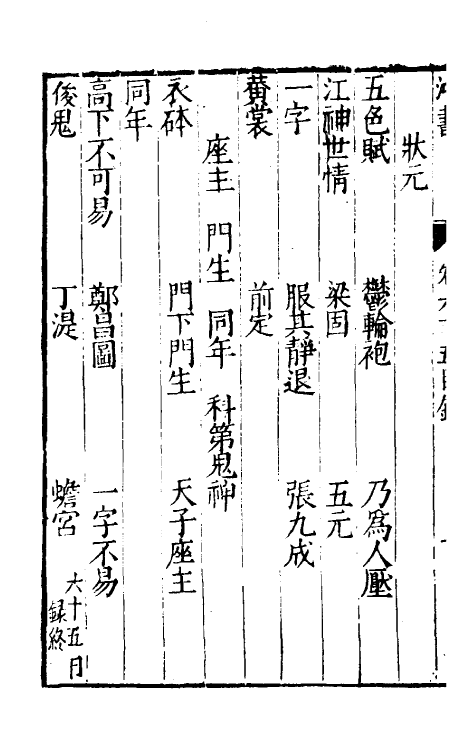 狀元
五色賦 鬱輪袍 乃爲人壓
江神世情 梁固 五元
一字 服其靜退 張九成
黄裳 前定
座主 門生 同年 科第鬼神
衣砵 門下門生 天子座主
同年
高下不可易 鄭昌圖 一字不易
俊鬼 丁湜 蟾宫 六十五目録終